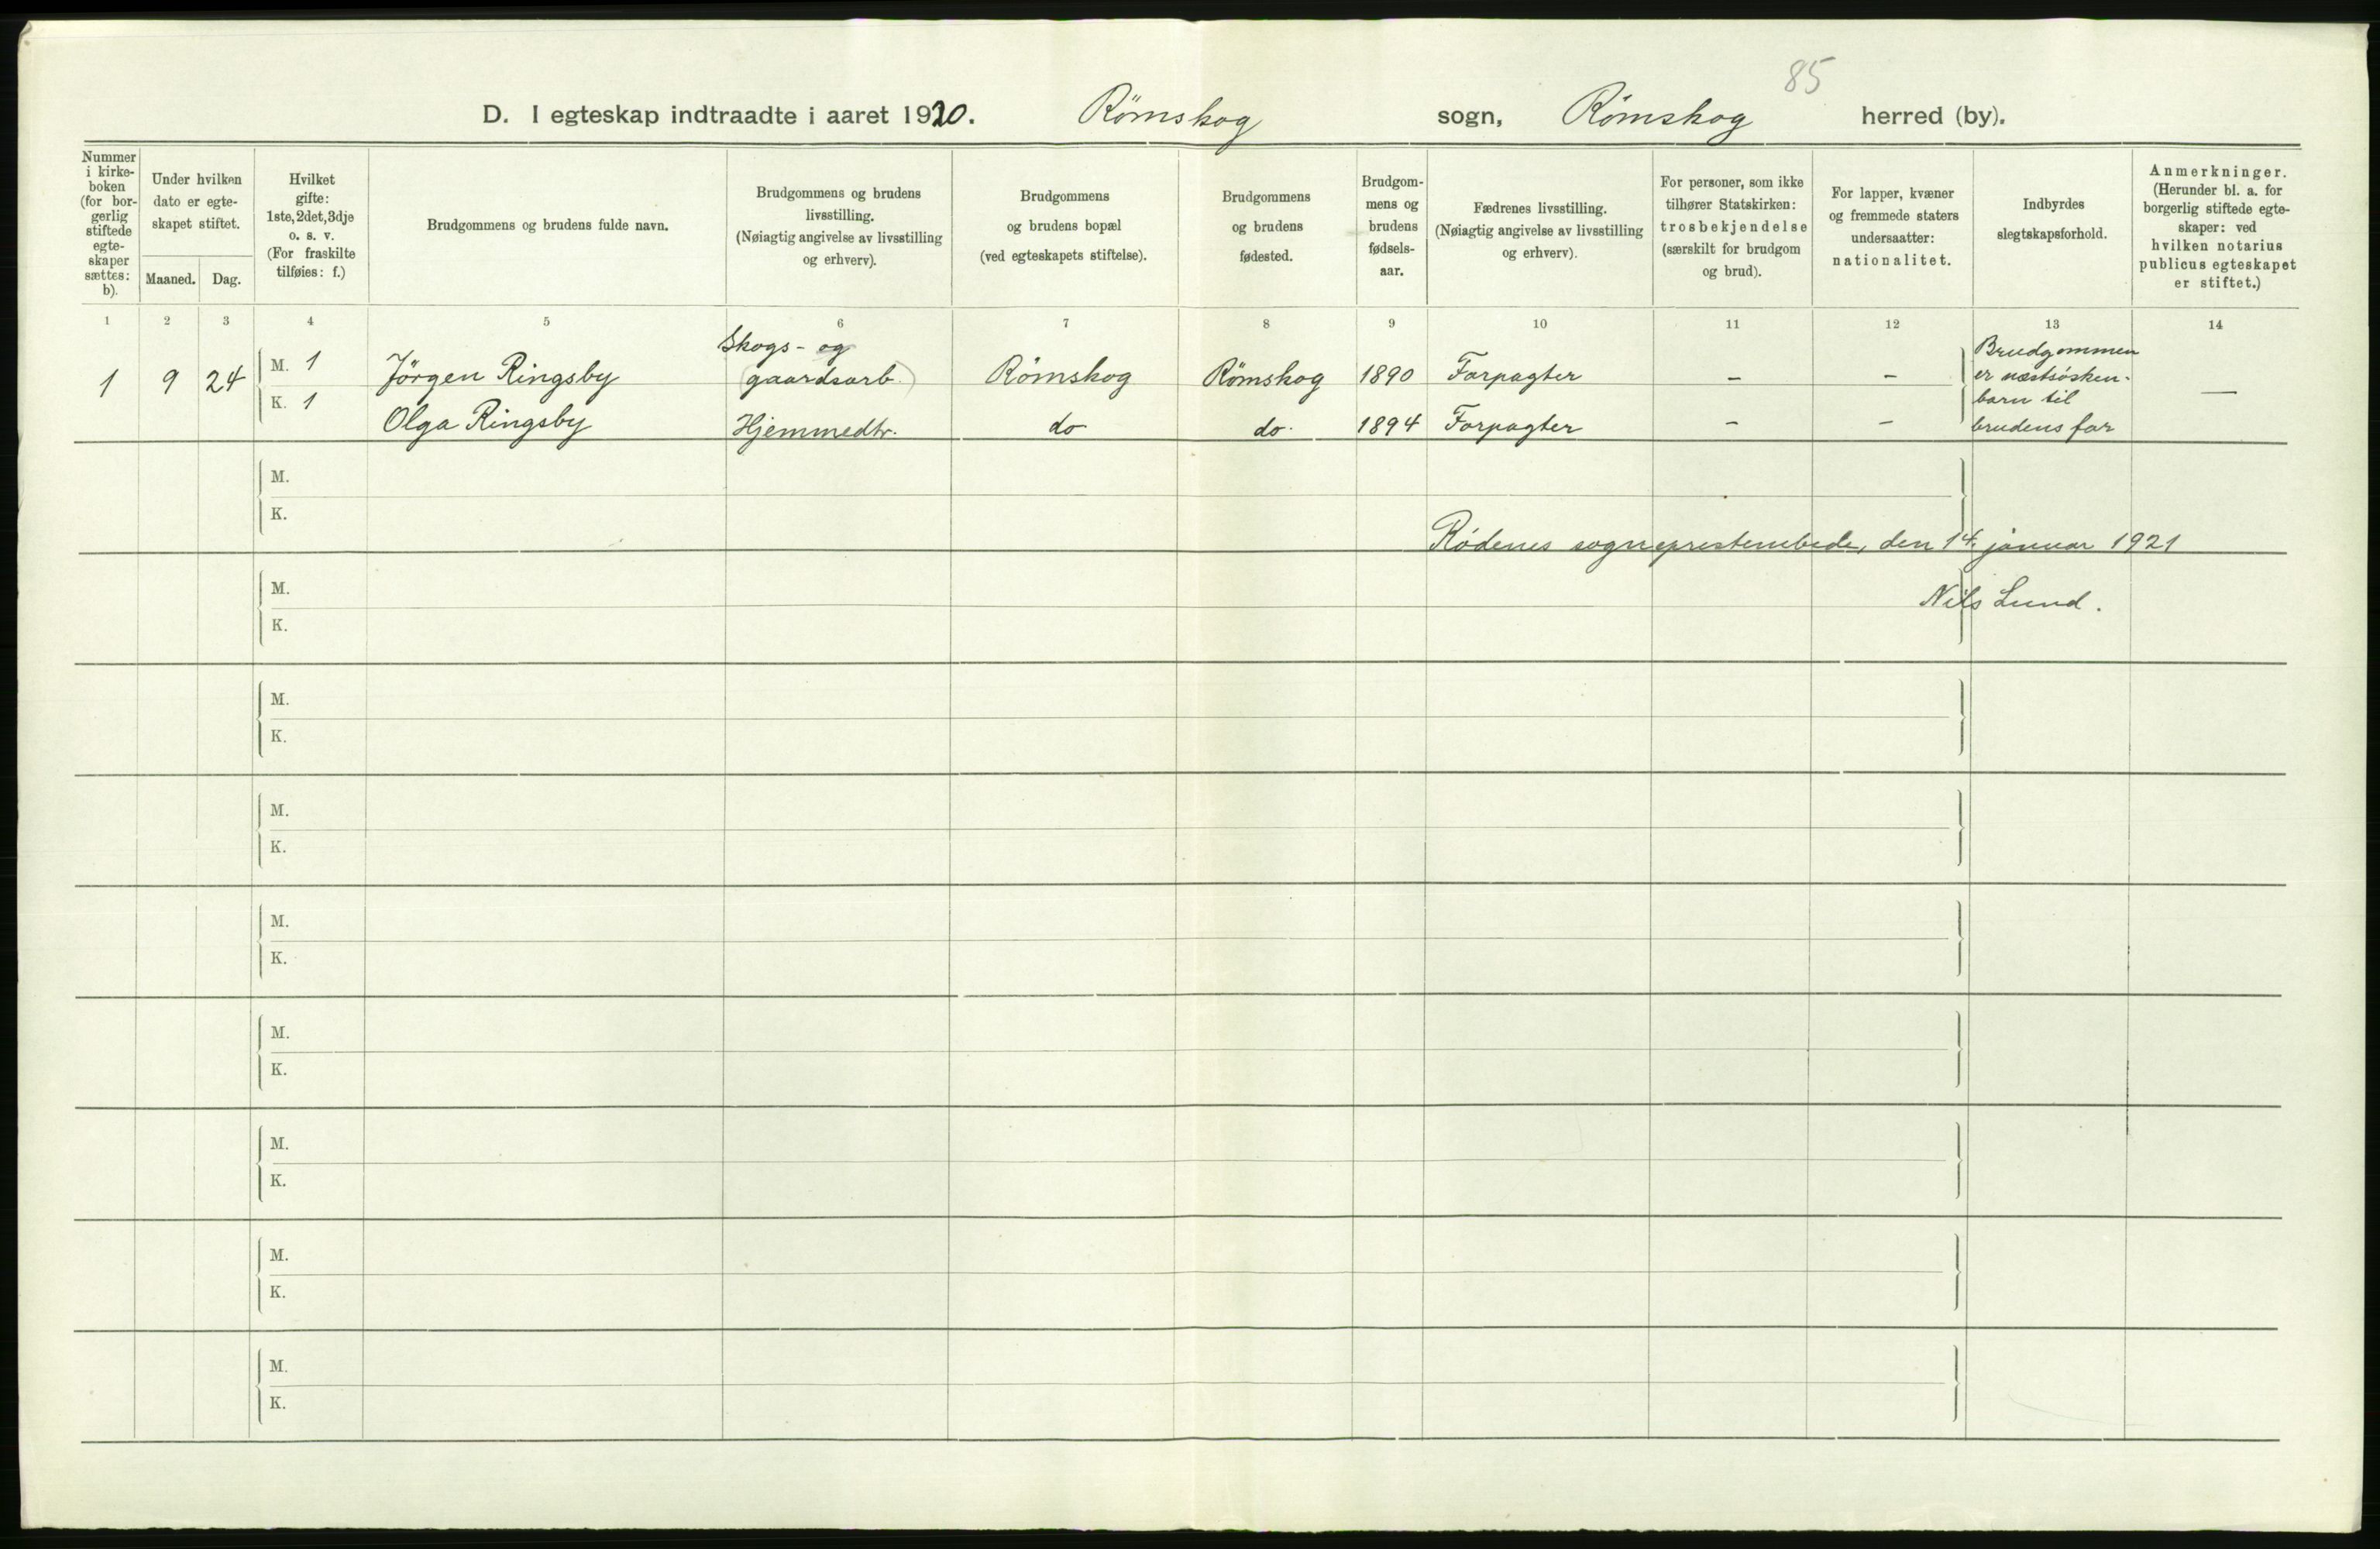 85
D. I egteskap indtraadte i aaret 1920. Römskog sogn, Römskog herred (by).
Nummer i kirke- boken (for bor- gerlig stiftede egte- skaper sættes: b).
Under hvilken dato er egte- skapet stiftet.
Maaned. Dag.
Hvilket gifte: 1ste, 2det, 3dje o. s. v. (For fraskilte tilføies: f.)
Brudgommens og brudens fulde navn.
Brudgommens og brudens livsstilling. (Nøiagtig angivelse av livsstilling og erhverv).
Brudgommens og brudens bopæl (ved egteskapets stiftelse).
Brudgommens og brudens fødested.
Brudgom- mens og brudens fødsels- aar.
Fædrenes livsstilling. (Nøiagtig angivelse av livsstilling og erhverv).
For personer, som ikke tilhører Statskirken: trosbekjendelse (særskilt for brudgom og brud).
For lapper, kvæner og fremmede staters undersaatter: nationalitet.
Indbyrdes slegtskapsforhold.
Anmerkninger. (Herunder bl. a. for borgerlig stiftede egte- skaper: ved hvilken notarius publicus egteskapet er stiftet.)
1 2 3 4 5 6 7 8 9 10 11 12 13 14
1 9 24 M. 1 Jörgen Ringsby Skogs- og gaardsarb. Römskog Römskog 1890 Forpagter – – Brudgommen er næstsösken- barn til brudens far —
K. 1 Olga Ringsby Hjemmedtr. do do. 1894 Forpagter – –
M.
K.
Rödenes sogneprestembede, den 14. januar 1921
M.
Nils Lund.
K.
M.
K.
M.
K.
M.
K.
M.
K.
M.
K.
M.
K.
M.
K.